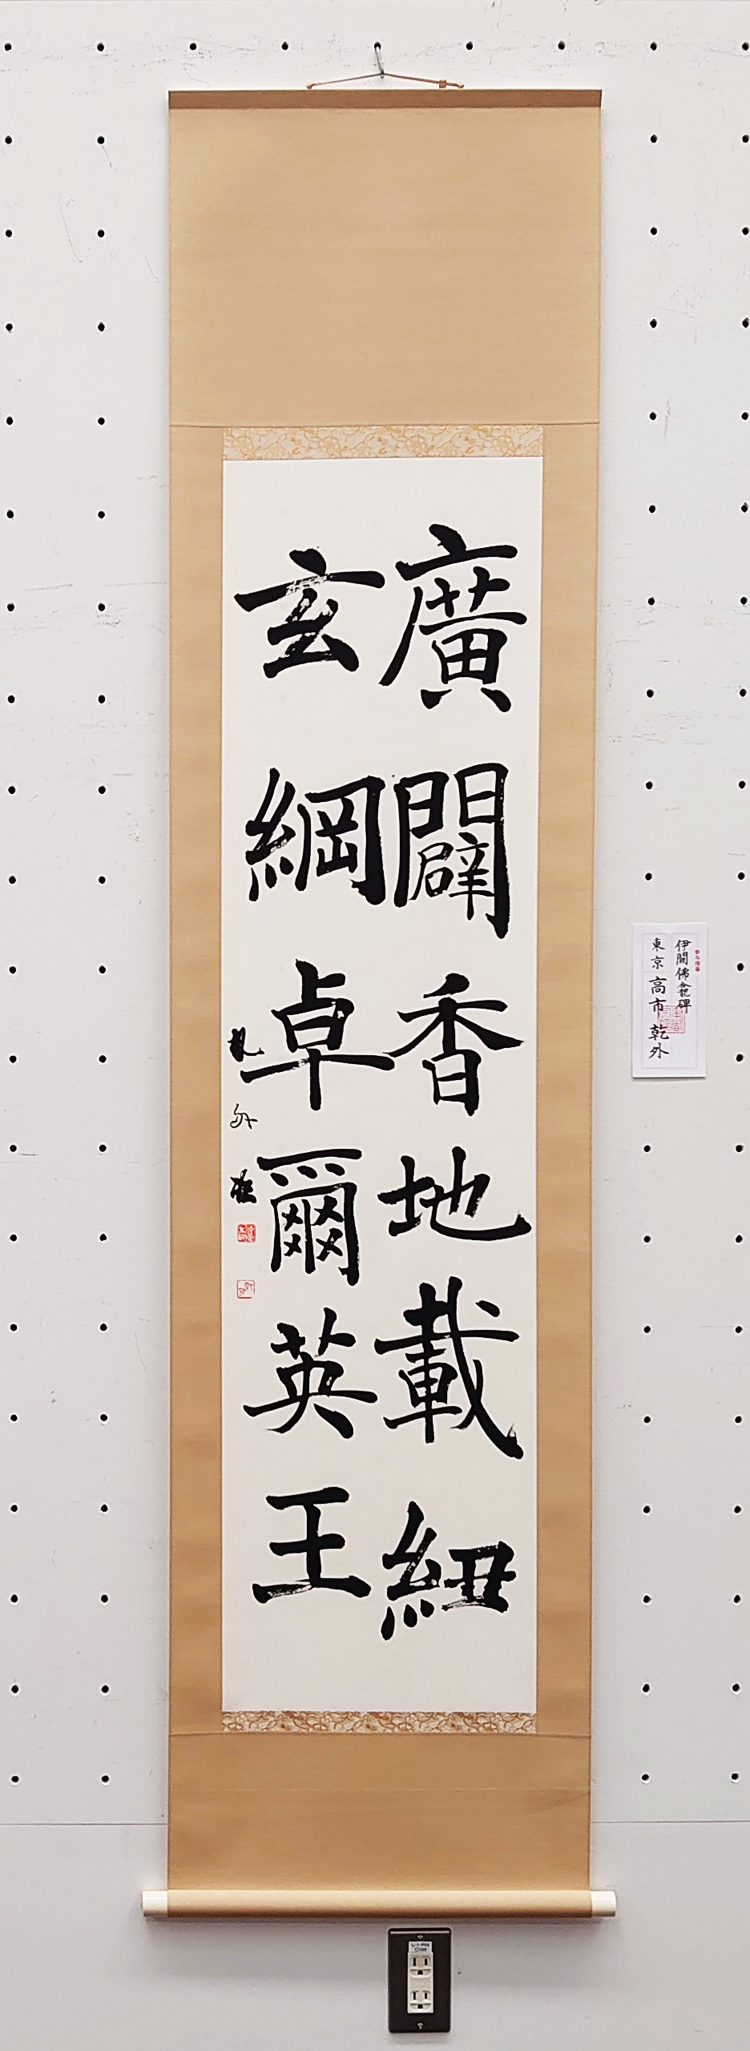 廣闢香地載紐
玄綱卓爾英王
乾外臨
伊闕佛龕碑
東京 高市 乾外